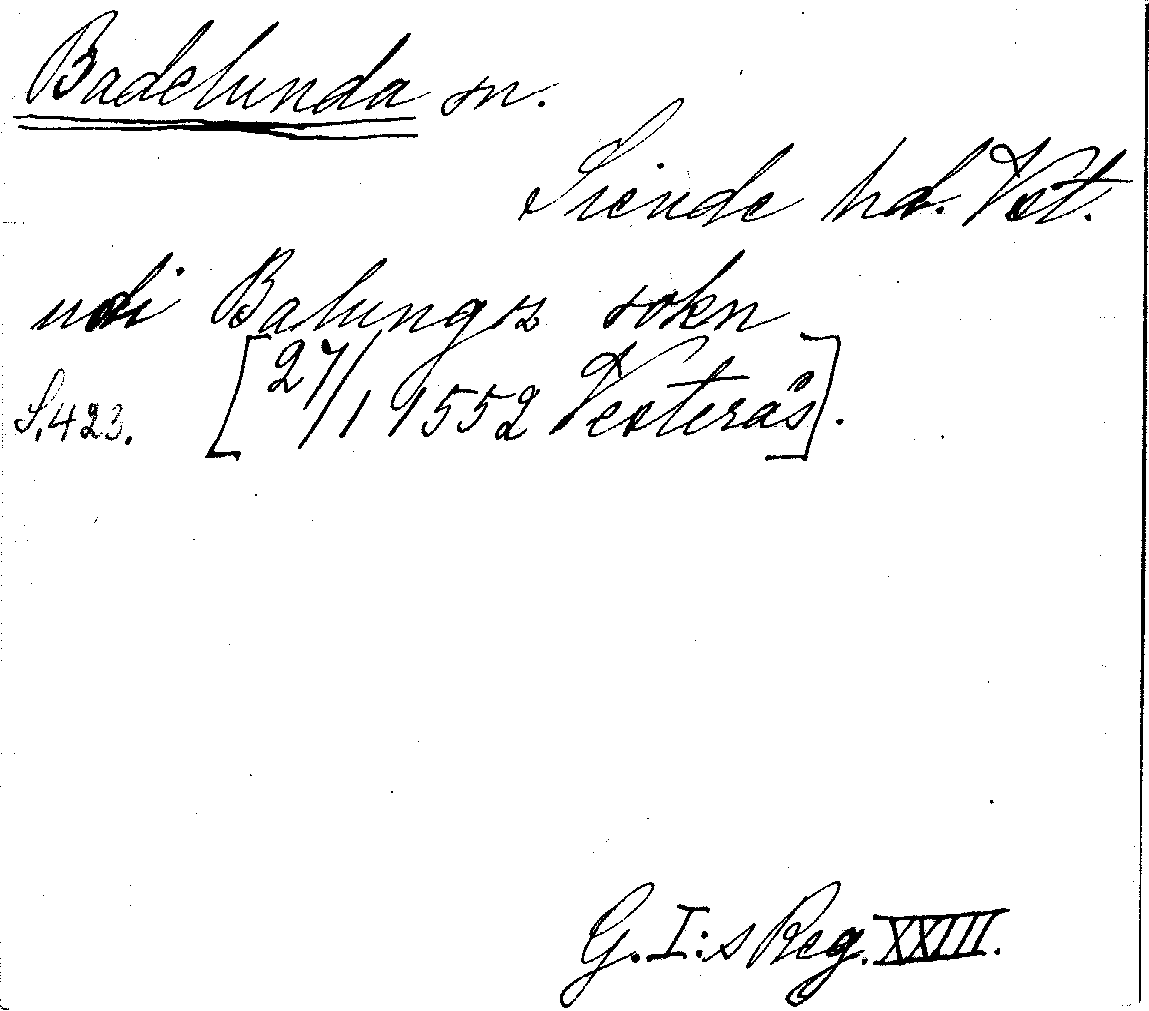 Badelunda sn.
Siende hd. Vst.
udi Balungz sokn
S. 423. [27/1 1552 Vesterås].
G. I:s Reg. XXIII.